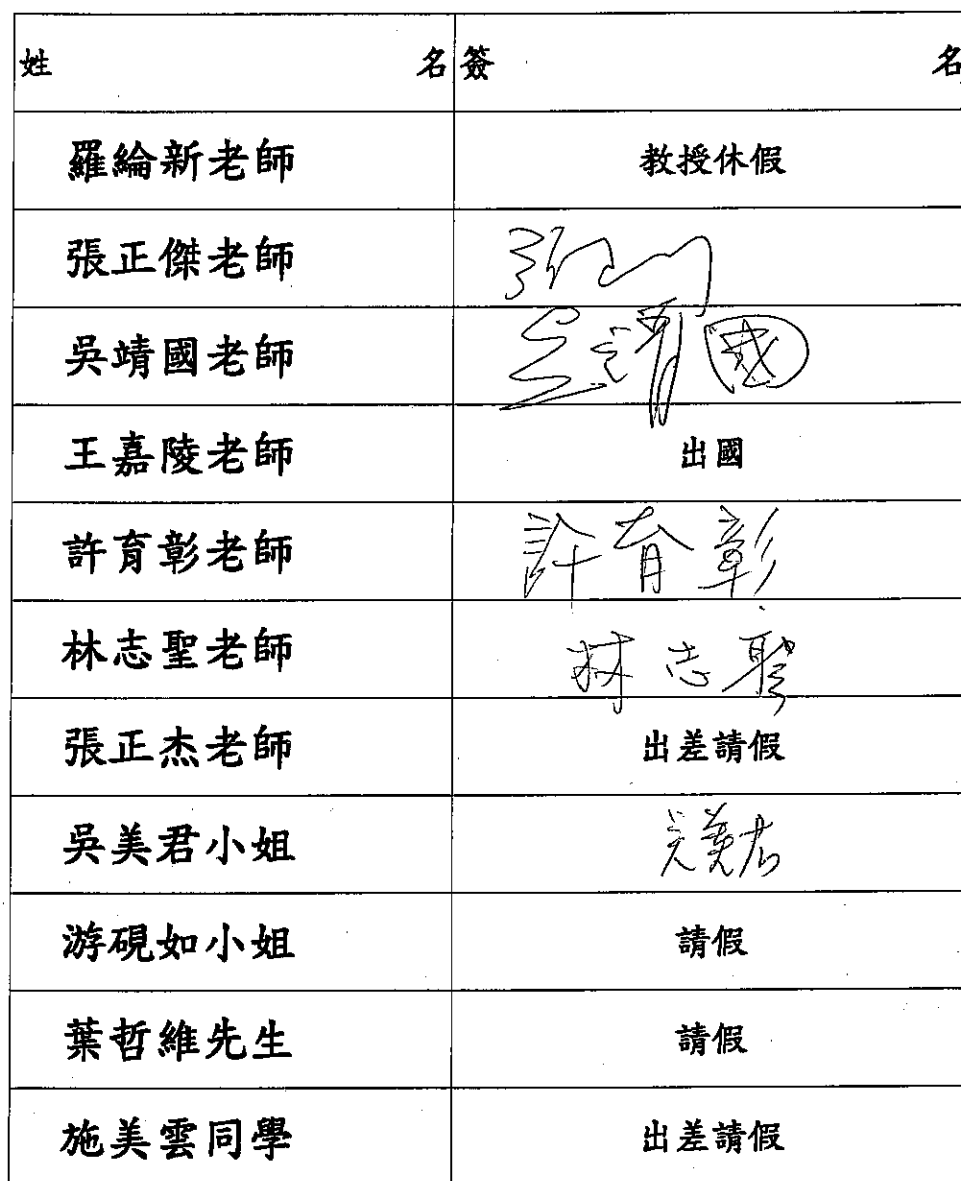 姓名 簽名
羅綸新老師 教授休假
張正傑老師
吳靖國老師 吳靖國
王嘉陵老師 出國
許育彰老師 許育彰
林志聖老師 林志聖
張正杰老師 出差請假
吳美君小姐 吳美君
游硯如小姐 請假
葉哲維先生 請假
施美雲同學 出差請假